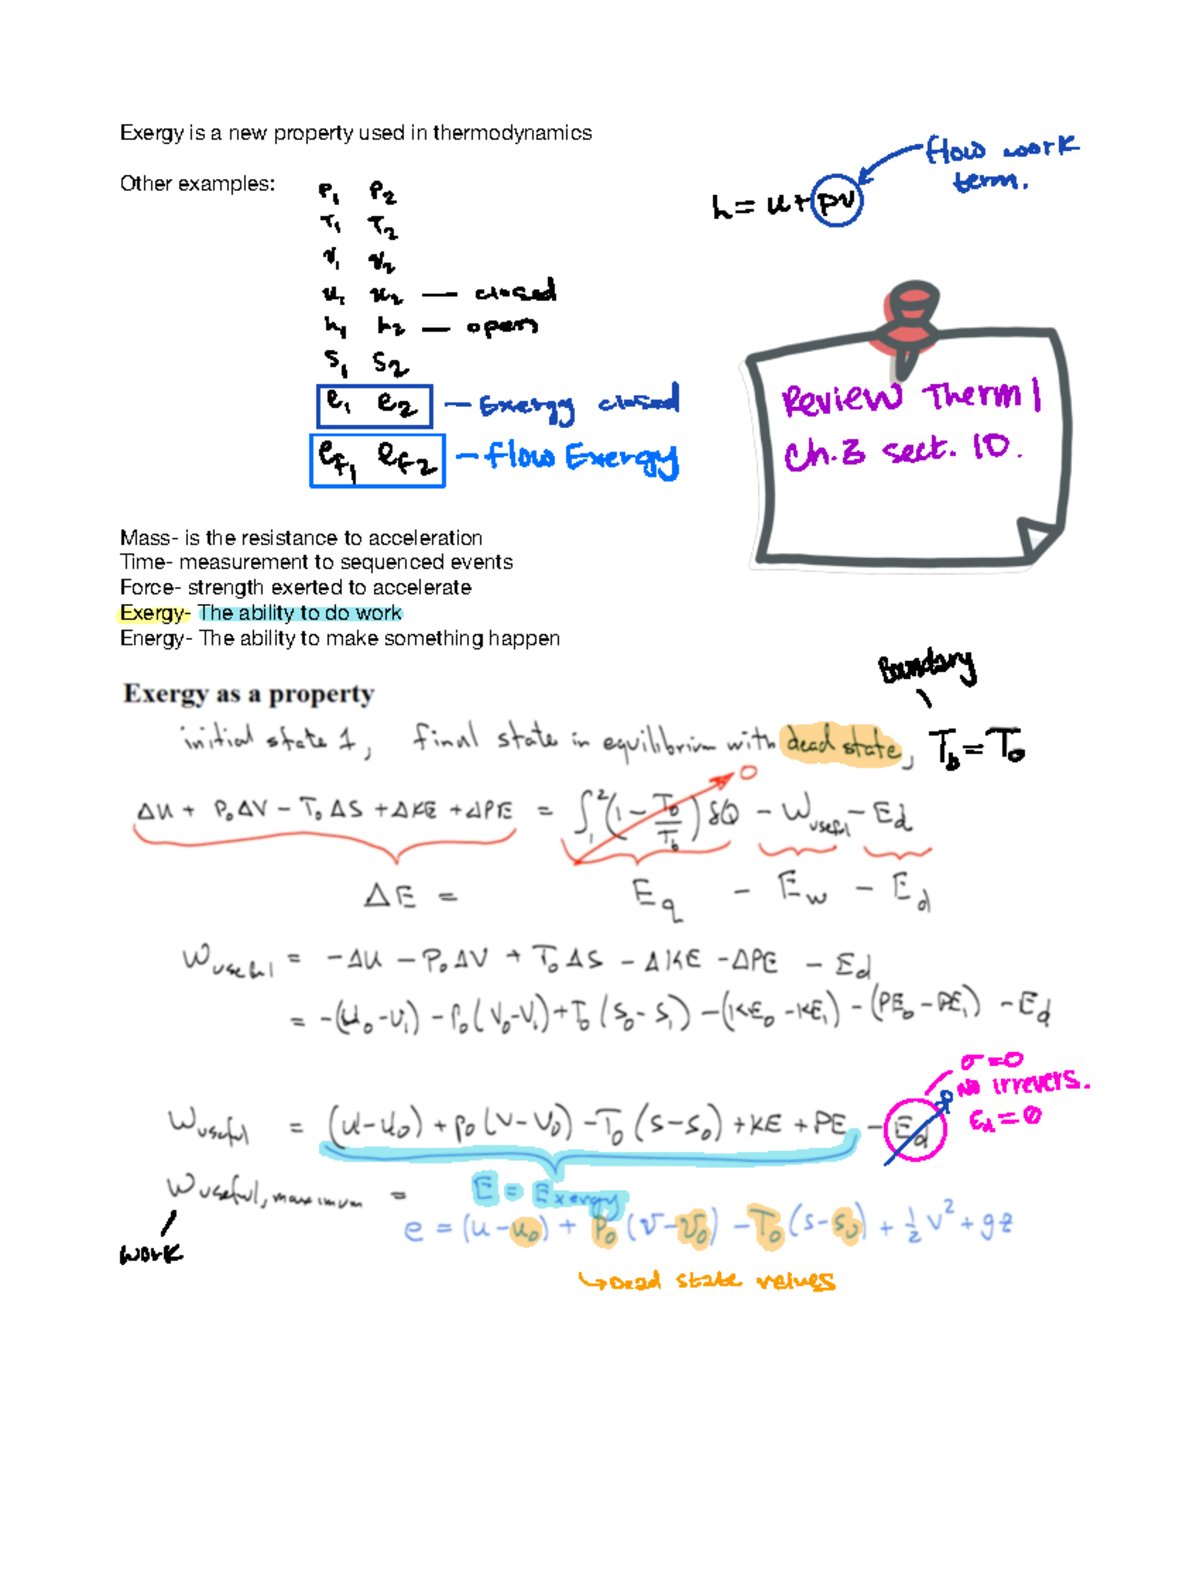 Exergy is a new property used in thermodynamics
flow work
term.
h = u + pv
Other examples:
P₁ P₂
T₁ T₂
v₁ v₂
u₁ u₂ — closed
h₁ h₂ — open
S₁ S₂
e₁ e₂ — Exergy closed
ef₁ ef₂ — Flow Exergy
Review Therm 1
Ch.3 sect. 10.
Mass- is the resistance to acceleration
Time- measurement to sequenced events
Force- strength exerted to accelerate
Exergy- The ability to do work
Energy- The ability to make something happen
Boundary
Exergy as a property
initial state 1, final state in equilibrium with dead state, T_b = T₀
0
ΔU + P₀ΔV − T₀ΔS + ΔKE + ΔPE = ∫₁² (1 − T₀/T_b) δQ − W_useful − E_d
ΔE = E_q − E_w − E_d
W_useful = −ΔU − P₀ΔV + T₀ΔS − ΔKE − ΔPE − E_d
= −(U₀−U₁) − P₀(V₀−V₁) + T₀(S₀−S₁) − (KE₀−KE₁) − (PE₀−PE₁) − E_d
σ=0
No irrevers.
E_d = 0
W_useful = (U−U₀) + P₀(V−V₀) − T₀(S−S₀) + KE + PE − E_d
0
W_useful, maximum = E = Exergy
e = (u−u₀) + P₀(v−v₀) − T₀(s−s₀) + ½v² + gz
work
↳ Dead state values